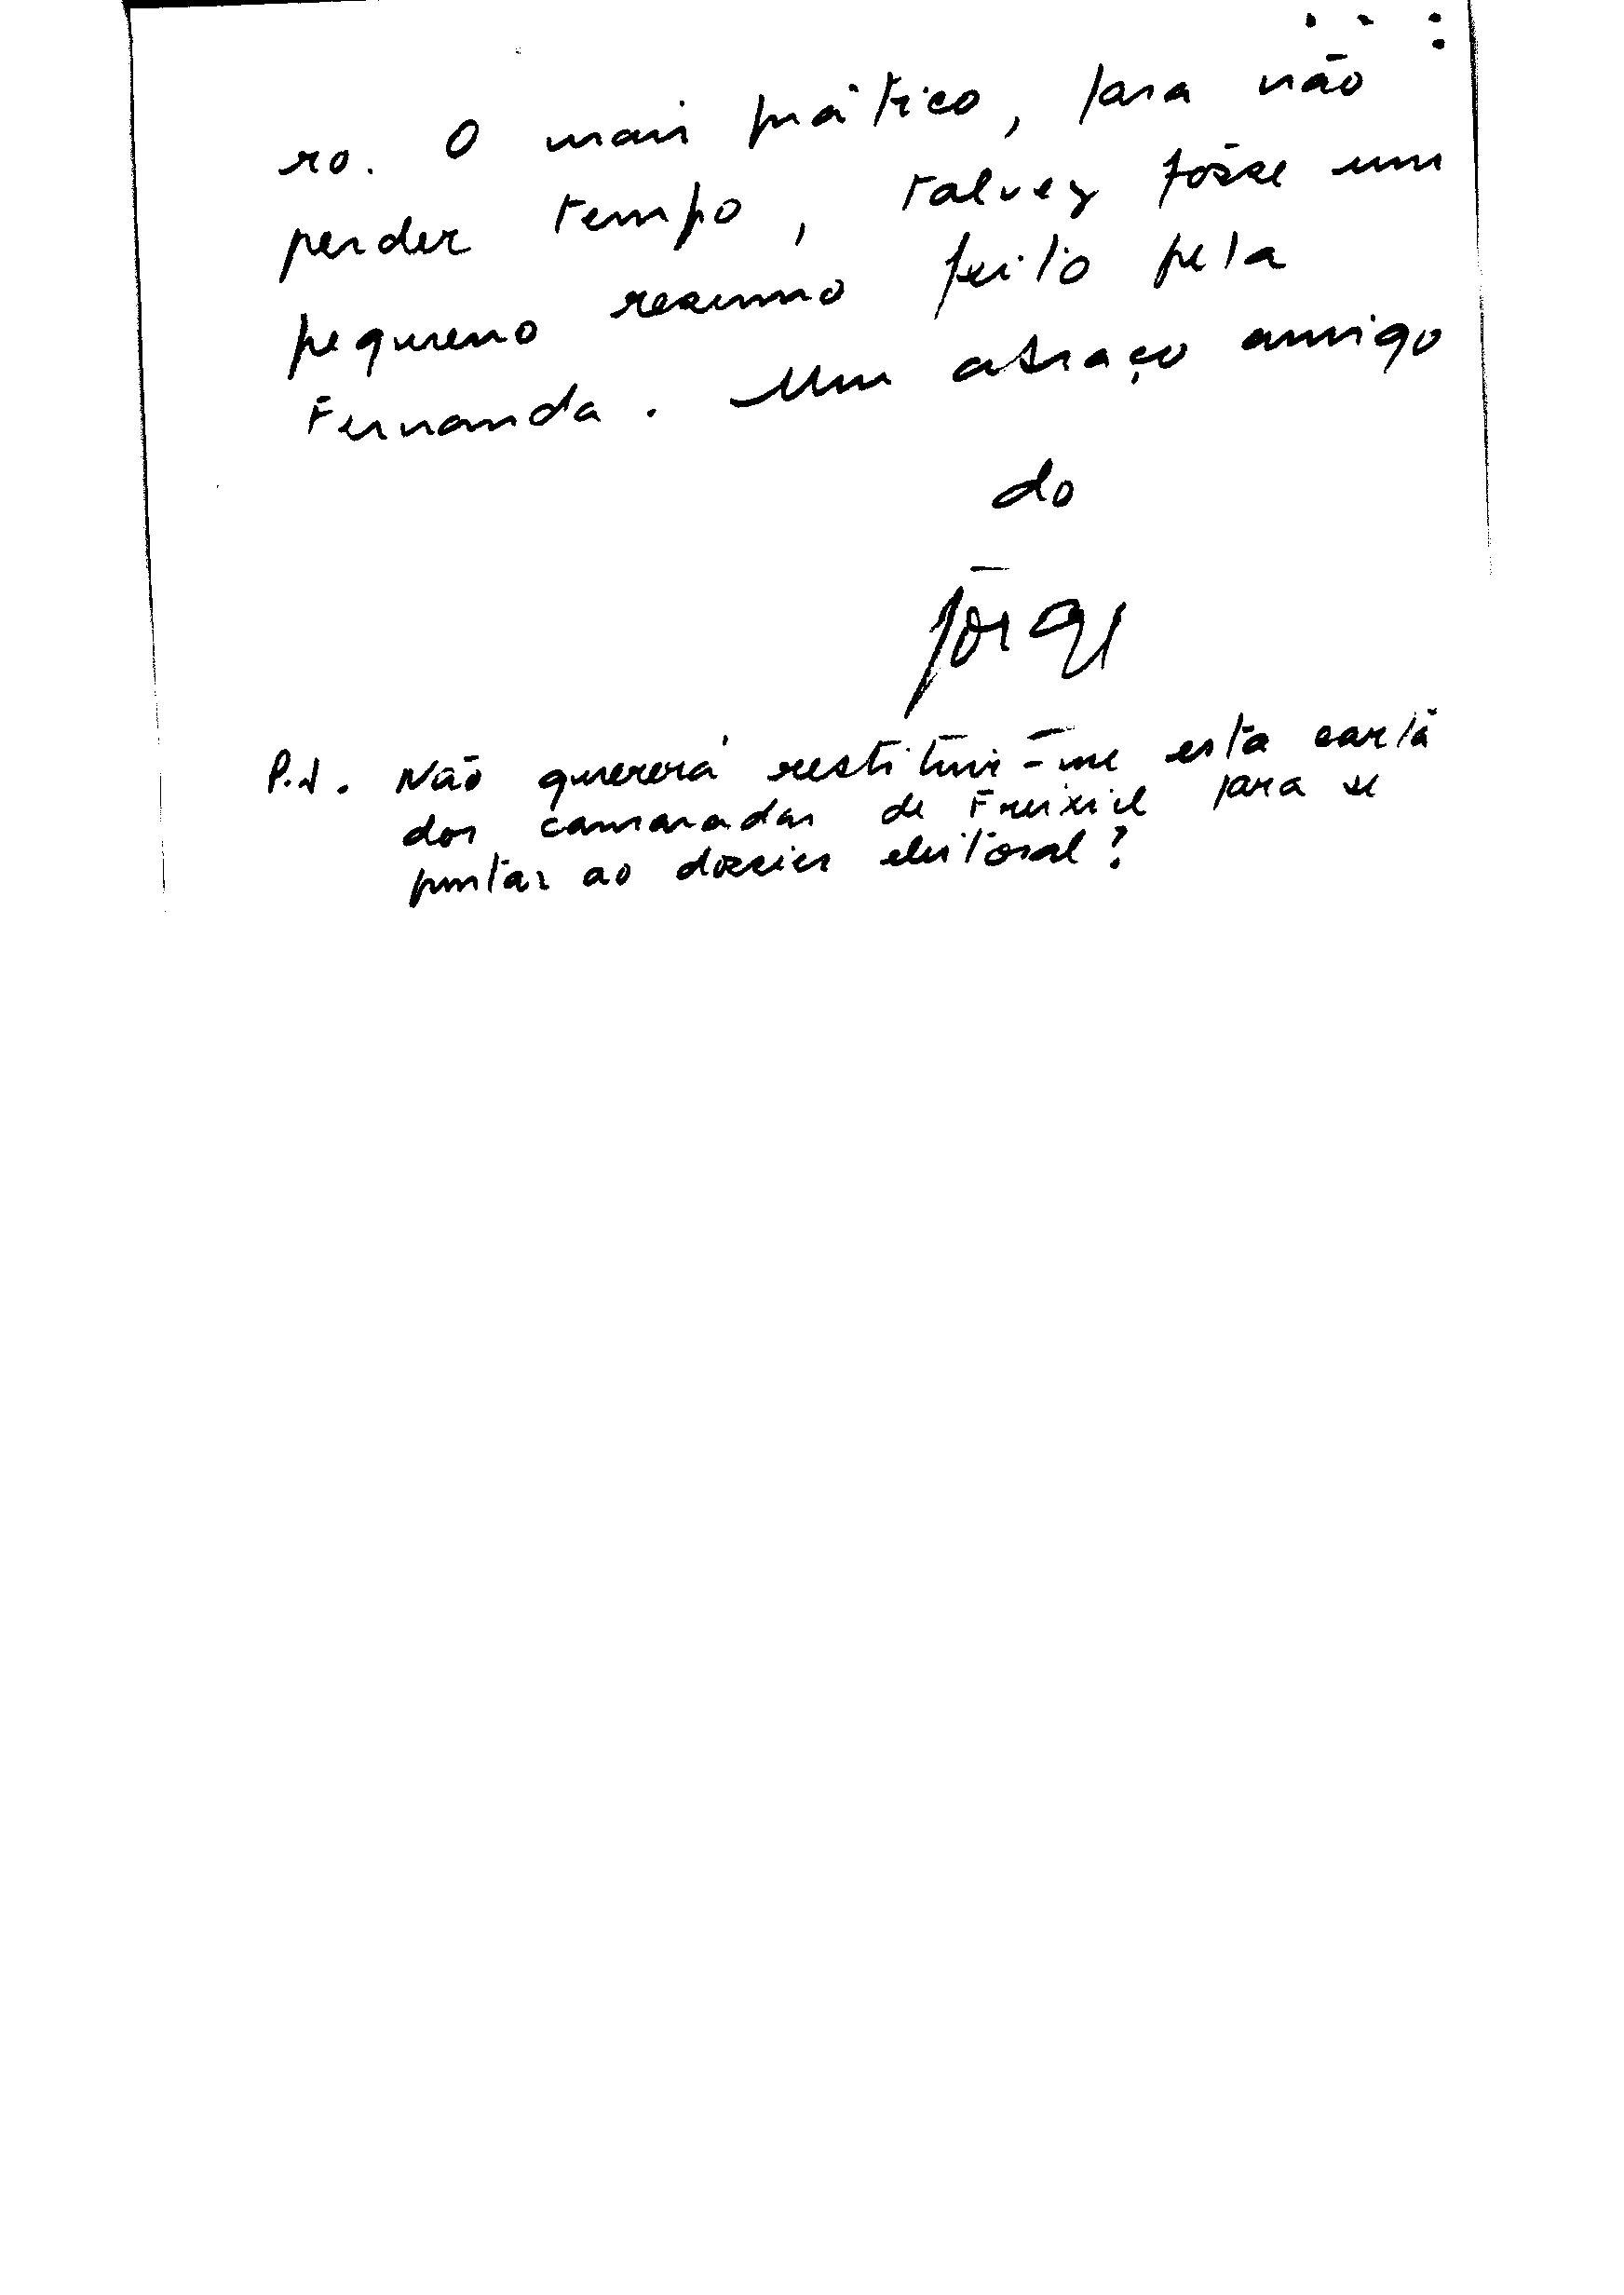 ro. O mais prático, para não
perder tempo, talvez fôsse um
pequeno resumo feito pela
Fernanda. Um abraço amigo
do
Jorge
P.S. Não quererá restituir-me esta carta
dos camaradas de Freixiel para se
juntar ao dossier eleitoral?